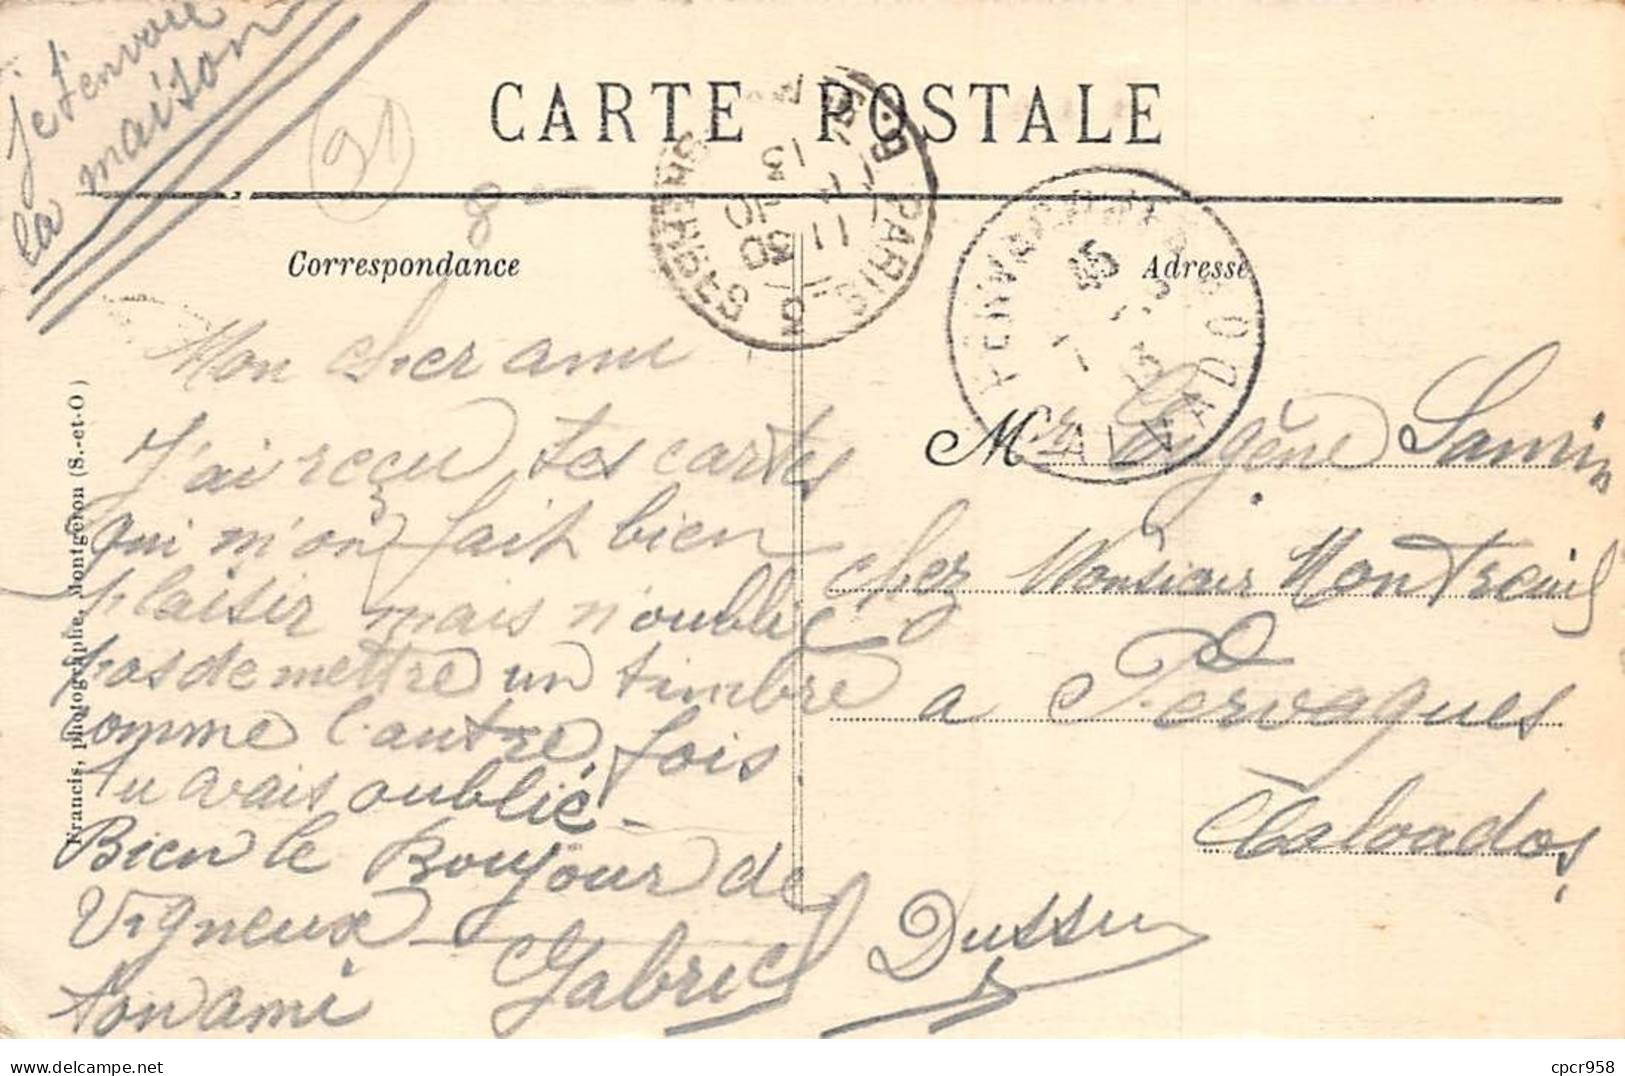 Je t'envoie
la maison
CARTE POSTALE
91
8
Correspondance
Adresse
PARIS
CALVADOS
Mon cher ami
J'ai reçu tes cartes
qui m'on fait bien
plaisir mais n'oublie
pas de mettre un timbre
comme l'autre fois
Tu avais oublié.
Bien le Boujour de
Vigneux
ton ami Gabriel Dussu
M Eugène Samin
chez Monsieur Montreuil
a Fervaques
Calvados
Francis, photographe, Montgeron (S.-et-O)
cpcr958